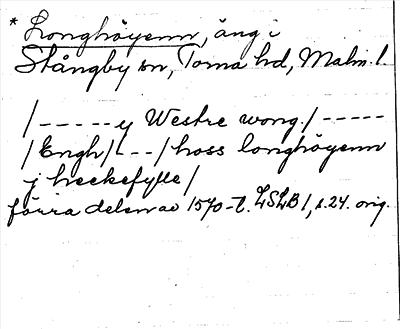 * Longhöyenn, äng i
Stångby sn, Torna hd, Malm. l.
/-----y Westre wong./-----
/Engh/---/hoss longhöyenn
j heckefylle/
förra delen av 1570-t. LSLB 1, s. 24. orig.